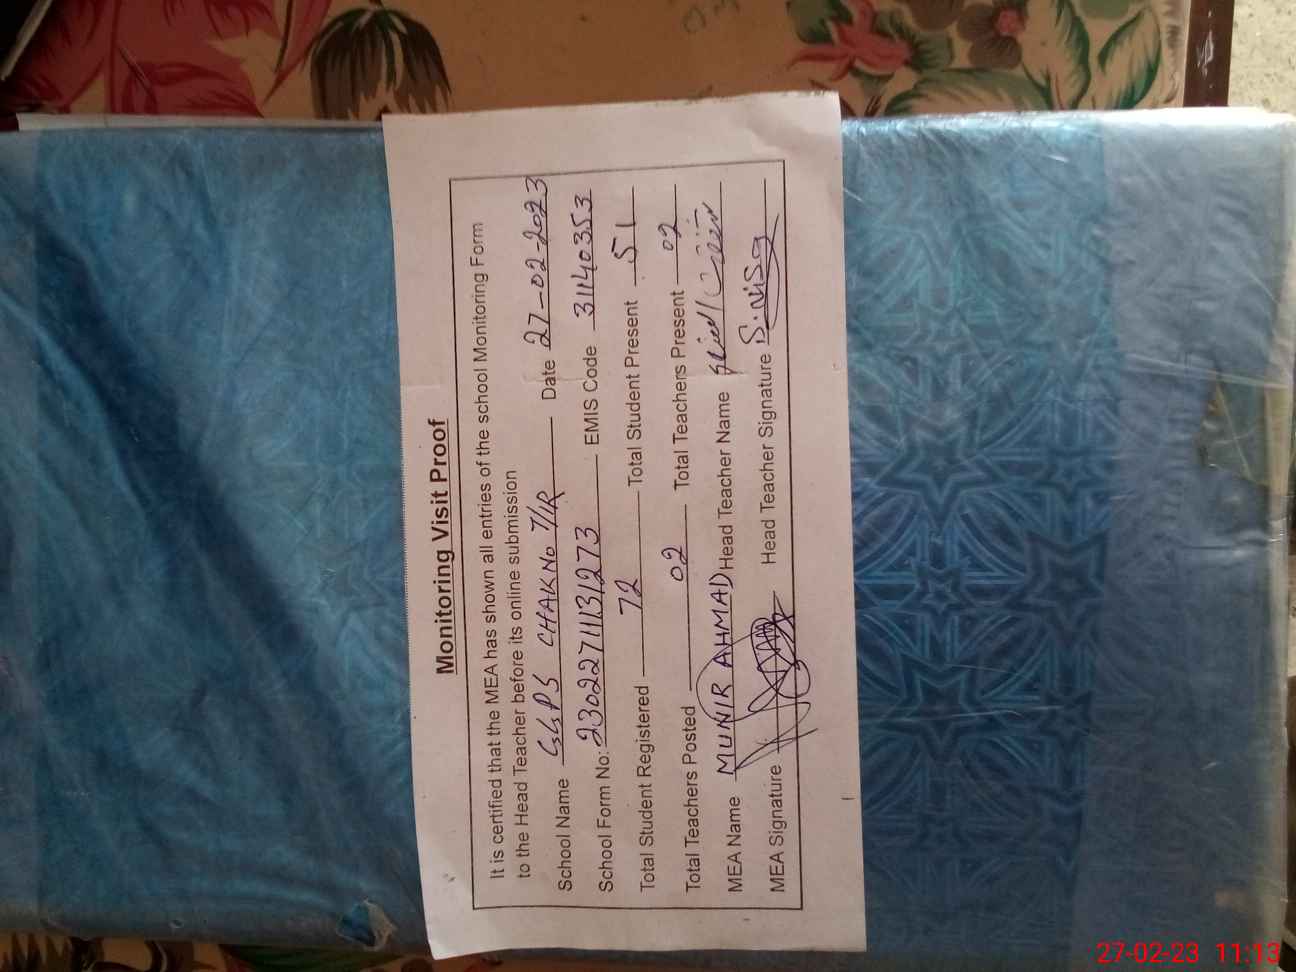 Monitoring Visit Proof
It is certified that the MEA has shown all entries of the school Monitoring Form
to the Head Teacher before its online submission
School Name GGPS CHAK No 7/1R Date 27-02-2023
School Form No: 2302271131273 EMIS Code 31140353
Total Student Registered 72 Total Student Present 51
Total Teachers Posted 02 Total Teachers Present 02
MEA Name MUNIR AHMAD Head Teacher Name
MEA Signature Head Teacher Signature S.Nisa
27-02-23 11:13